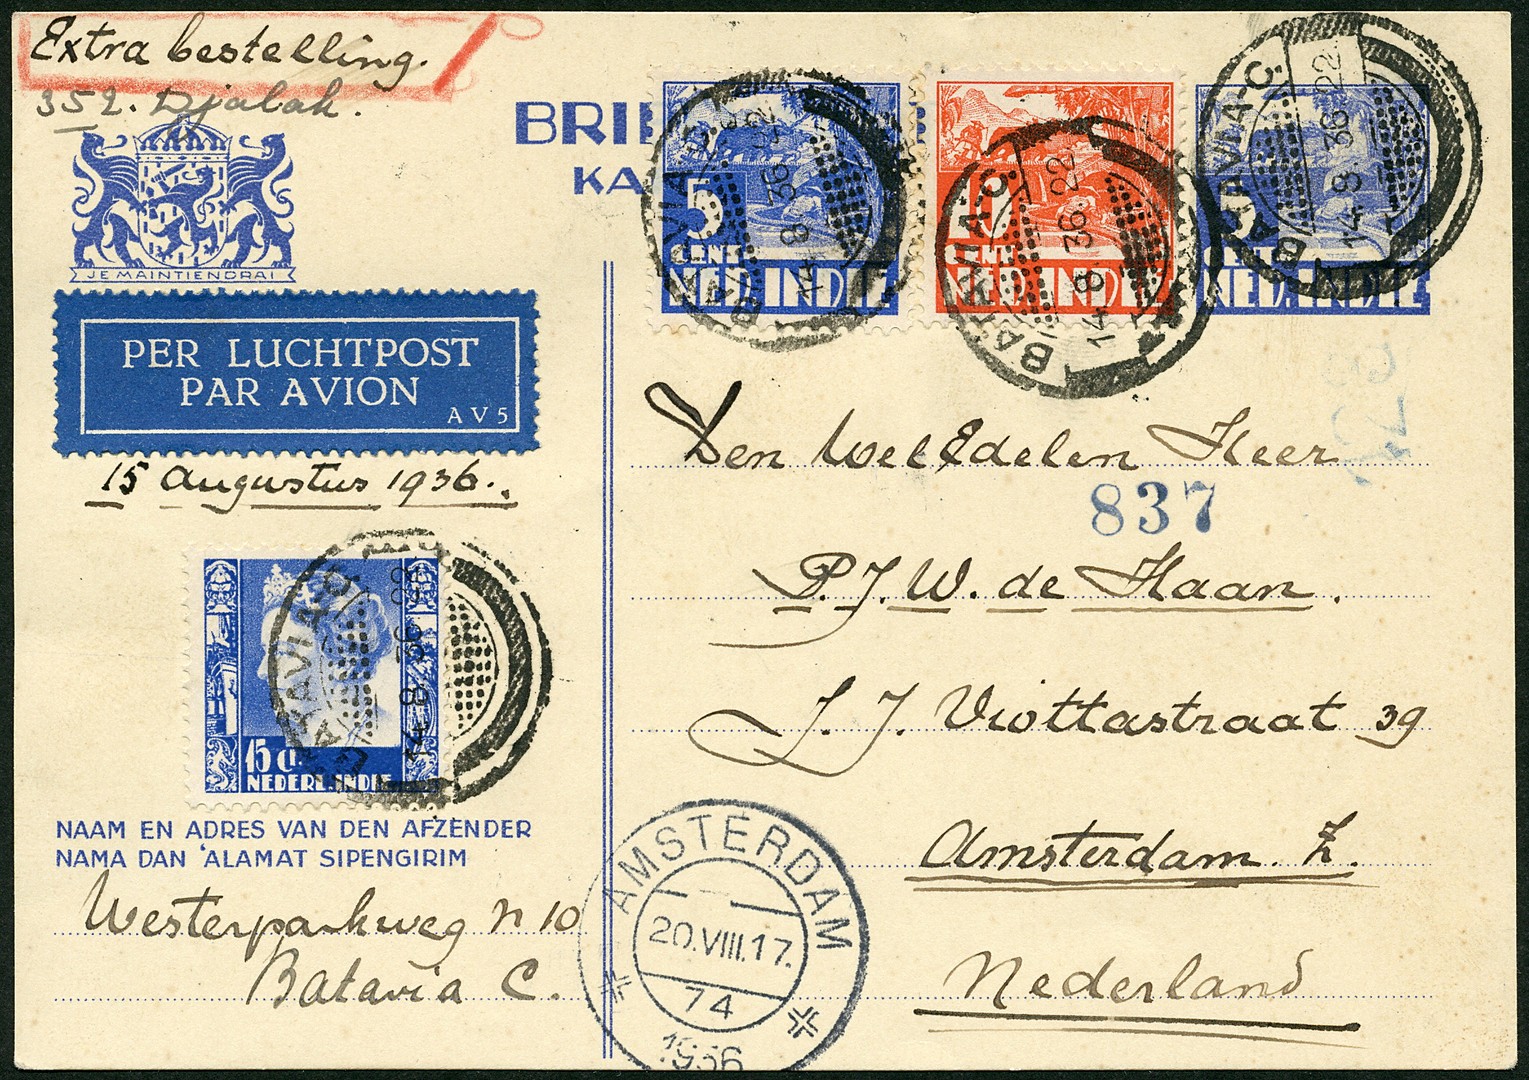 Extra bestelling.
352. Djalak.
JE MAINTIENDRAI
PER LUCHTPOST
PAR AVION
AV5
15 Augustus 1936.
15 ct.
NEDERL.INDIE
BATAVIA-C.
14 8 36 22
NAAM EN ADRES VAN DEN AFZENDER
NAMA DAN 'ALAMAT SIPENGIRIM
Westerparkweg n 10
Batavia C.
5
CENT
NED.INDIE
BATAVIA-C.
14 8 36 22
10
CENT
NED.INDIE
BATAVIA-C.
14 8 36. 22
NED.INDIE
BATAVIA-C.
14 8 36 22
Den WelEdelen Heer
837
P.J.W. de Haan.
J. J. Viottastraat 39
Amsterdam. Z.
Nederland
AMSTERDAM
20.VIII.17.
74
1936